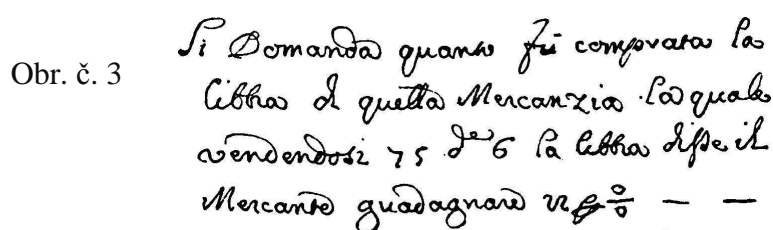 Obr. č. 3
Si Domanda quanto fù comprata la
libbra di quella Mercanzia la quale
vendendosi 75 de 6 la libbra disse il
Mercante guadagnare p % — —